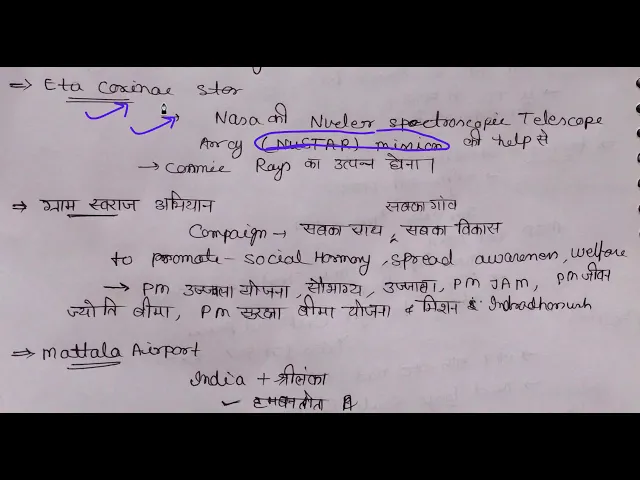 ⇒ Eta Corinae Star
→ Nasa की Nucler spectroscopic Telescope
Arrcy (NuSTAR) mission की help से
→ Cosmic Rays का उत्पन्न होना।
⇒ ग्राम स्वराज अभियान सबका गाँव
Campaign → सबका साथ, सबका विकास
to promote - social Harmony, spread awarenes, welfare
→ PM उज्जवला योजना, सौभाग्य, उजाला, PM JAM, PM जीवन
ज्योति बीमा, PM सुरक्षा बीमा योजना & मिशन Indradhanush
⇒ Mattala Airport
India + श्रीलंका
हमबनतोता